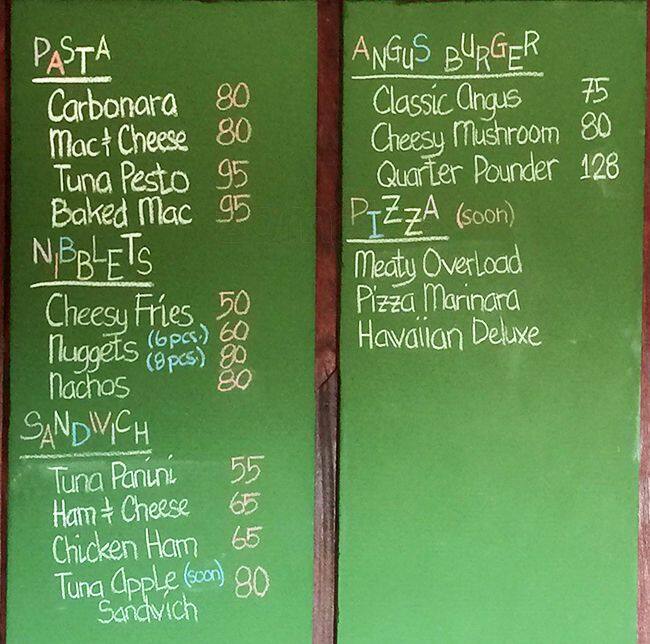 PASTA
Carbonara 80
Mac & Cheese 80
Tuna Pesto 95
Baked Mac 95
NIBBLETS
Cheesy Fries 50
Nuggets (6pcs.) 60
(8pcs) 80
Nachos 80
SANDWICH
Tuna Panini 55
Ham & Cheese 65
Chicken Ham 65
Tuna Apple (soon) 80
Sandwich
ANGUS BURGER
Classic Angus 75
Cheesy Mushroom 80
Quarter Pounder 128
PIZZA (soon)
Meaty Overload
Pizza Marinara
Hawaiian Deluxe